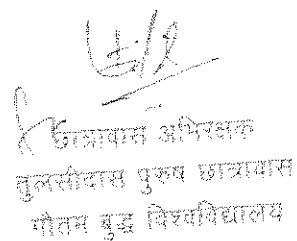 छात्रावास अभिरक्षक
तुलसीदास पुरुष छात्रावास
गौतम बुद्ध विश्वविद्यालय